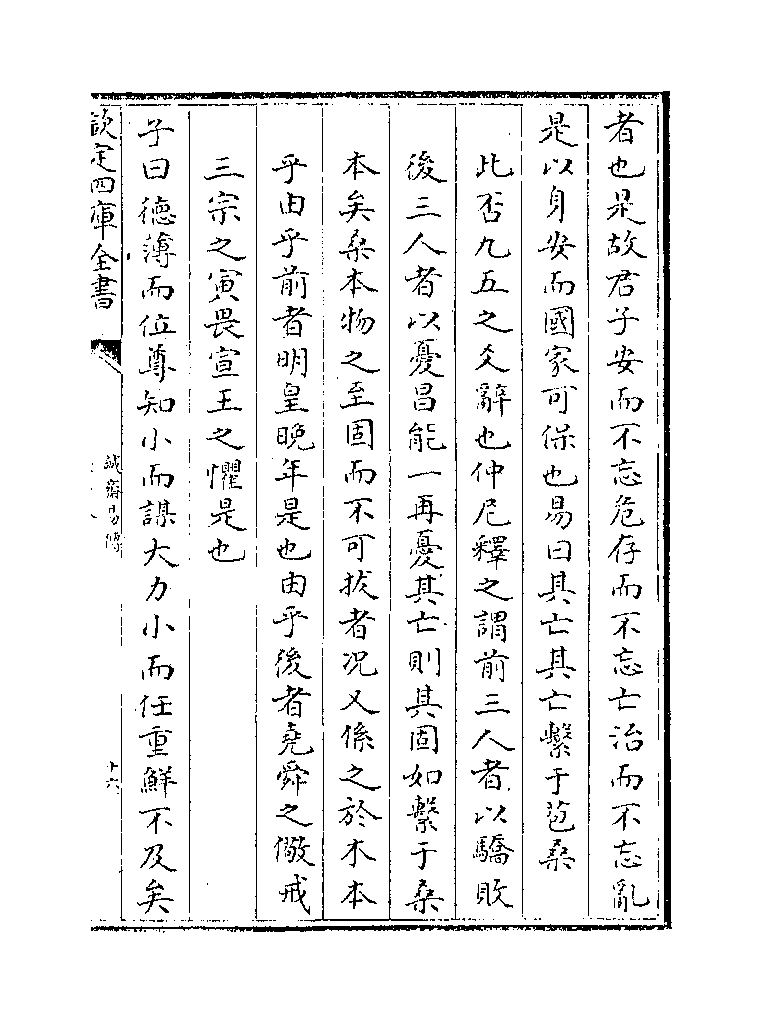 者也是故君子安而不忘危存而不忘亡治而不忘亂
是以身安而國家可保也易曰其亡其亡繫于苞桑
此否九五之爻辭也仲尼釋之謂前三人者以驕敗
後三人者以憂昌能一再憂其亡則其固如繫于桑
本矣桑本物之至固而不可拔者况又係之於木本
乎由乎前者明皇晚年是也由乎後者堯舜之儆戒
三宗之寅畏宣王之懼是也
子曰德薄而位尊知小而謀大力小而任重鮮不及矣
欽定四庫全書
誠齋易傳
十六